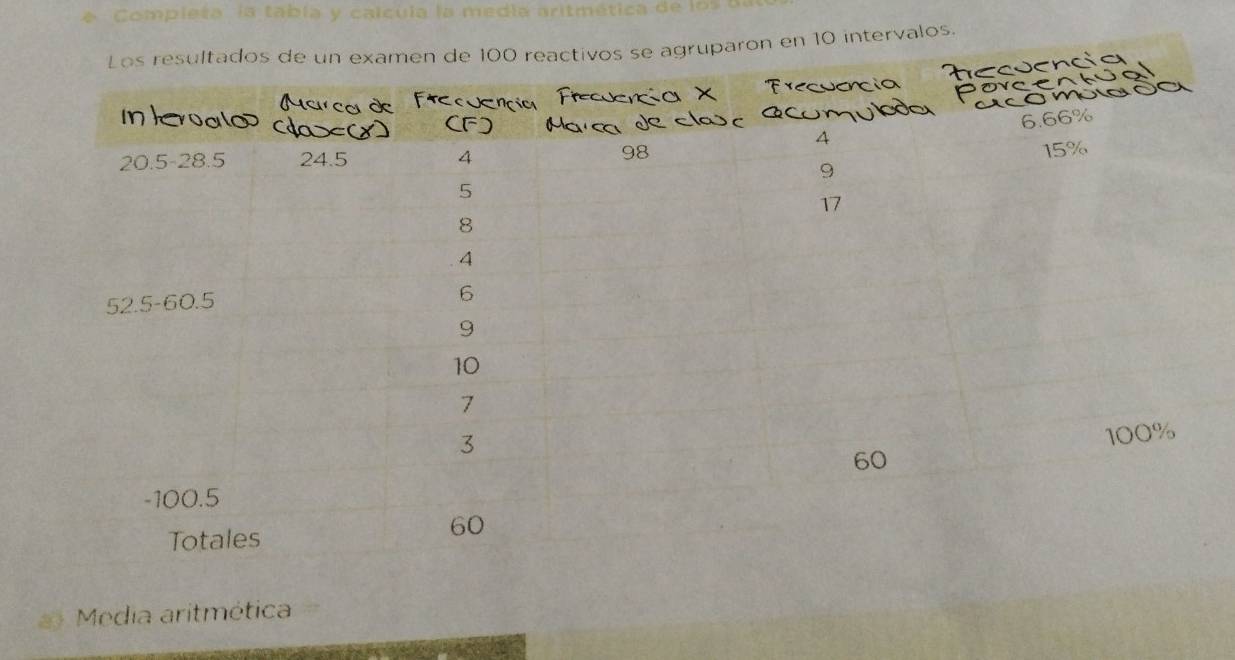 Completa la tabla y calcula la media aritmética de los
Los resultados de un examen de 100 reactivos se agruparon en 10 intervalos.
Intervalos Marca de clase (x) Frecuencia (F) Frecuencia x Marca de clase Frecuencia acumulada Frecuencia porcentual acomulada
20.5-28.5 24.5 4 98 4 6.66%
5 9 15%
8 17
4
52.5-60.5 6
9
10
7
3
-100.5 60 100%
Totales 60
a) Media aritmética =